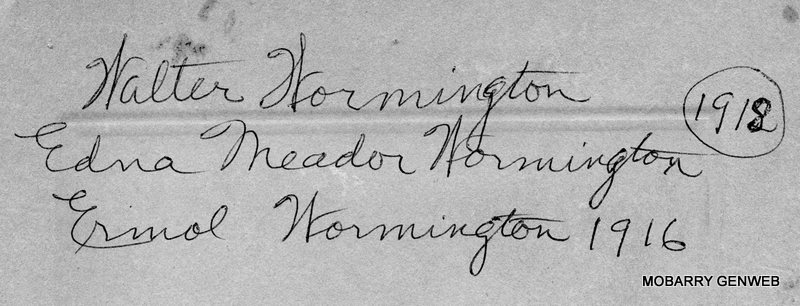 Walter Wormington
1918
Edna Meador Wormington
Ermol Wormington 1916
MOBARRY GENWEB